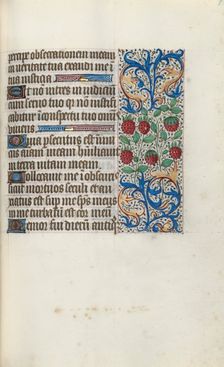 percipe obsecrationem meam
in veritate tua exaudi me i
tua iusticia
Et non intres in iudici
cum servo tuo quia non iusti
cabitur in conspectu tuo omi
vivens
Quia persecutus est
us animam meam humiliavit i
terra vitam meam
Collocavit me in obscuris
sicut mortuos seculi et an
natus est super me spiritus meus
in me turbatum est cor meum
Memor fui dierum antiq